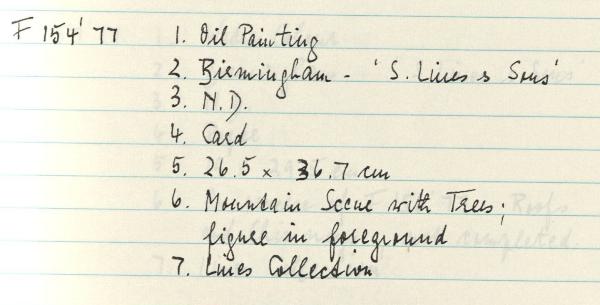 F 154' 77 1. Oil Painting
2. Birmingham - 'S. Lines & Sons'
3. N.D.
4. Card
5. 26.5 x 36.7 cm
6. Mountain Scene with Trees;
figure in foreground
7. Lines Collection